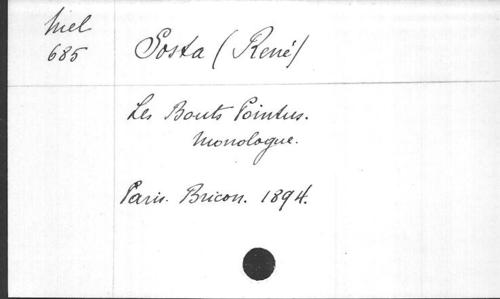 Niel
685
Sosta (René)
Les Bouts Pointus.
Monologue.
Paris. Bricon. 1894.